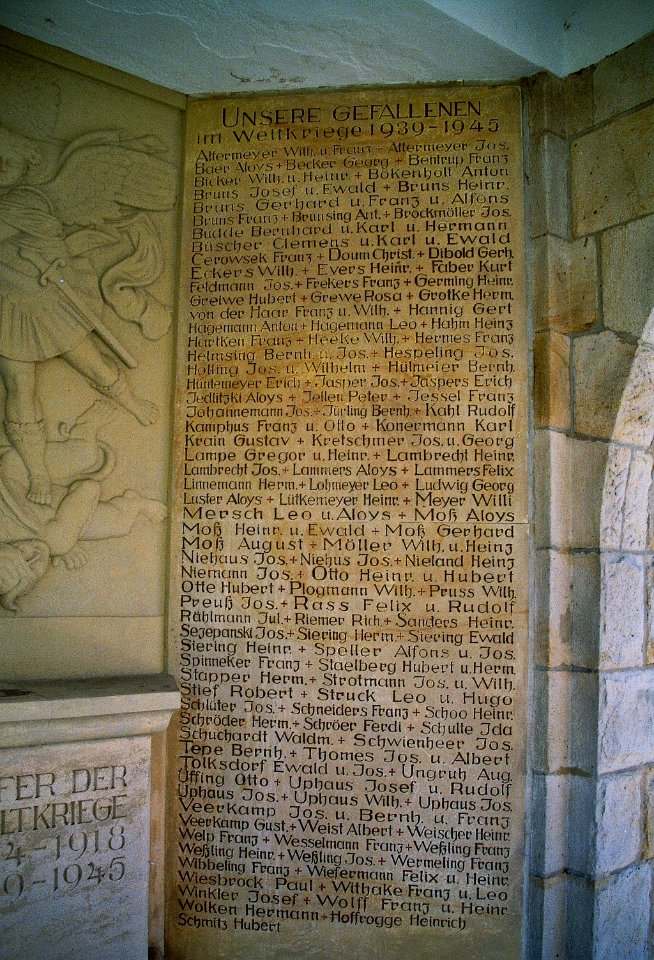 UNSERE GEFALLENEN
im WELTKRIEGE 1939-1945
ATTERMEYER WILH. u. FRANZ + ATTERMEYER JOS.
BAER ALOYS + BECKER GEORG + BENTRUP FRANZ
BICKER WILH. u. HEINR. + BÖKENHOLT ANTON
BRUNS JOSEF u. EWALD + BRUNS HEINR.
BRUNS GERHARD u. FRANZ u. ALFONS
BRUNS FRANZ + BRÜNSING ANT. + BROCKMÖLLER JOS.
BUDDE BERNHARD u. KARL u. HERMANN
BÜSCHER CLEMENS u. KARL u. EWALD
CEROWSEK FRANZ + DOUM CHRIST. + DIBOLD GERH.
ECKERS WILH. + EVERS HEINR. + FABER KURT
FELDMANN JOS. + FREKERS FRANZ + GERMING HEINR.
GREIWE HUBERT + GREWE ROSA + GROTKE HERM.
VON DER HAAR FRANZ u. WILH. + HANNIG GERT
HAGEMANN ANTON + HAGEMANN LEO + HAHM HEINZ
HARTKEN FRANZ + HEEKE WILH. + HERMES FRANZ
HELMSING BERNH. u. JOS. + HESPELING JOS.
HÖLLING JOS. u. WILHELM + HÜLMEIER BERNH.
HÜNTEMEYER ERICH + JASPER JOS. + JASPERS ERICH
JEDLITZKI ALOYS + JELLEN PETER + JESSEL FRANZ
JOHANNEMANN JOS. + JÜRLING BERNH. + KAHL RUDOLF
KAMPHUS FRANZ u. OTTO + KONERMANN KARL
KRAIN GUSTAV + KRETSCHMER JOS. u. GEORG
LAMPE GREGOR u. HEINR. + LAMBRECHT HEINR.
LAMBRECHT JOS. + LAMMERS ALOYS + LAMMERS FELIX
LINNEMANN HERM. + LOHMEYER LEO + LUDWIG GEORG
LUSTER ALOYS + LÜTKEMEYER HEINR. + MEYER WILLI
MERSCH LEO u. ALOYS + MOß ALOYS
MOß HEINR. u. EWALD + MOß GERHARD
MOß AUGUST + MÖLLER WILH. u. HEINZ
NIEHAUS JOS. + NIEHUS JOS. + NIELAND HEINZ
NIEMANN JOS. + OTTO HEINR. u. HUBERT
OTTE HUBERT + PLOGMANN WILH. + PRUSS WILH.
PREUß JOS. + RASS FELIX u. RUDOLF
RÄHLMANN JUL. + RIEMER RICH. + SANDERS HEINR.
SEZEPANSKI JOS. + SIERING HERM. + SIERING EWALD
SIERING HEINR. + SPELLER ALFONS u. JOS.
SPINNEKER FRANZ + STAELBERG HUBERT u. HERM.
STAPPER HERM. + STROTMANN JOS. u. WILH.
STIEF ROBERT + STRUCK LEO u. HUGO
SCHLÜTER JOS. + SCHNEIDERS FRANZ + SCHOO HEINR.
SCHRÖDER HERM. + SCHRÖER FERDI + SCHULLE IDA
SCHUCHARDT WALDM. + SCHWIENHEER JOS.
TEPE BERNH. + THOMES JOS. u. ALBERT
TOLKSDORF EWALD u. JOS. + UNGRUH AUG.
ÜFFING OTTO + UPHAUS JOSEF u. RUDOLF
UPHAUS JOS. + UPHAUS WILH. + UPHAUS JOS.
VEERKAMP JOS. u. BERNH. u. FRANZ
VEERKAMP GUST. + WEIST ALBERT + WEISCHER HEINR.
WELP FRANZ + WESSELMANN FRANZ + WEßLING FRANZ
WEßLING HEINR. + WEßLING JOS. + WERMELING FRANZ
WIBBELING FRANZ + WIEFERMANN FELIX u. HEINR.
WIESBROCK PAUL + WITHAKE FRANZ u. LEO
WINKLER JOSEF + WOLFF FRANZ u. HEINR.
WOLKEN HERMANN + HOFFROGGE HEINRICH
SCHMITZ HUBERT
FER DER
LTKRIEGE
4-1918
9-1945